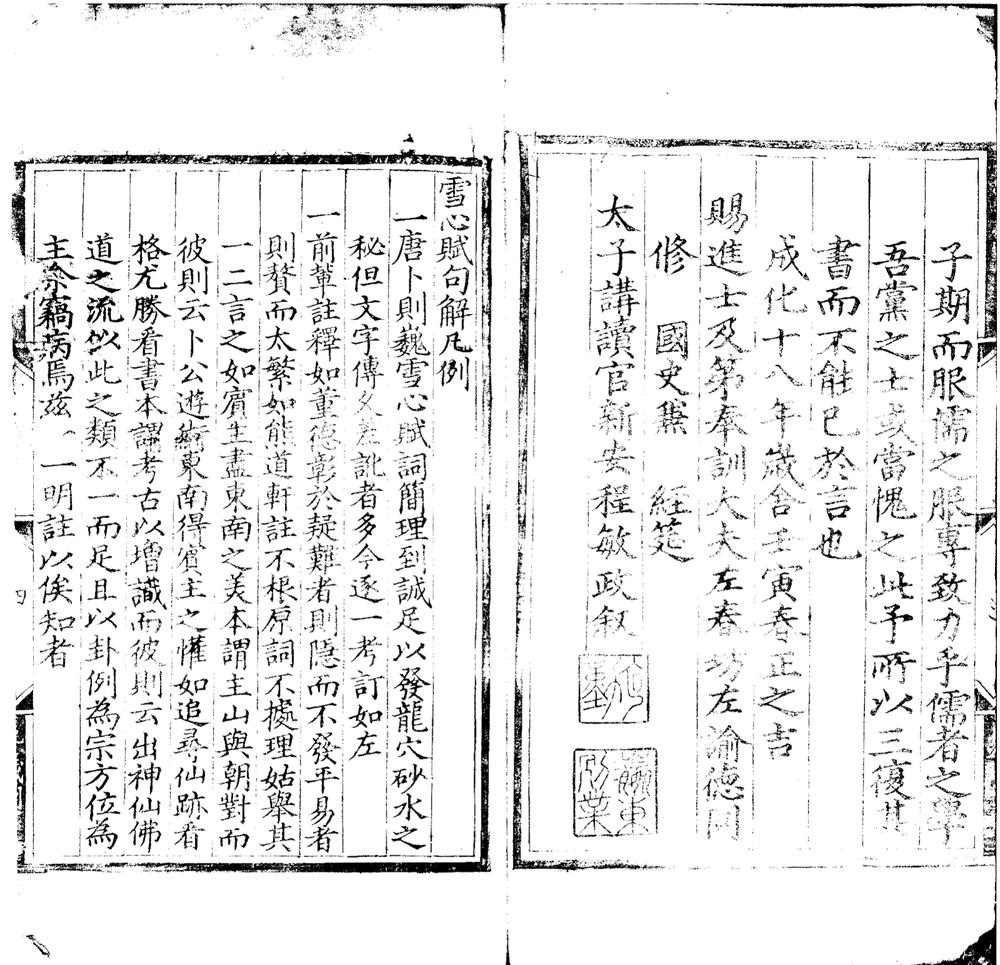 子期而服儒之服專致力乎儒者之學
吾黨之士或當愧之此予所以三復其
書而不能已於言也
成化十八年歲舍壬寅春正之吉
賜進士及第奉訓大夫左春坊左諭德同
修 國史兼 經筵
太子講讀官新安程敏政叙
雪心賦句解凡例
一唐卜則巍雪心賦詞簡理到誠足以發龍穴砂水之
秘但文字傳久差訛者多今逐一考訂如左
一前輩註釋如董德彰於疑難者則隱而不發平易者
則贅而太繁如熊道軒註不根原詞不據理姑舉其
一二言之如賓主盡東南之美本謂主山與朝對而
彼則云卜公遊衛東南得賓主之懽如追尋仙跡看
格尤勝看書本謂考古以增識而彼則云出神仙佛
道之流似此之類不一而足且以卦例為宗方位為
主余竊病焉茲 一明註以俟知者
四